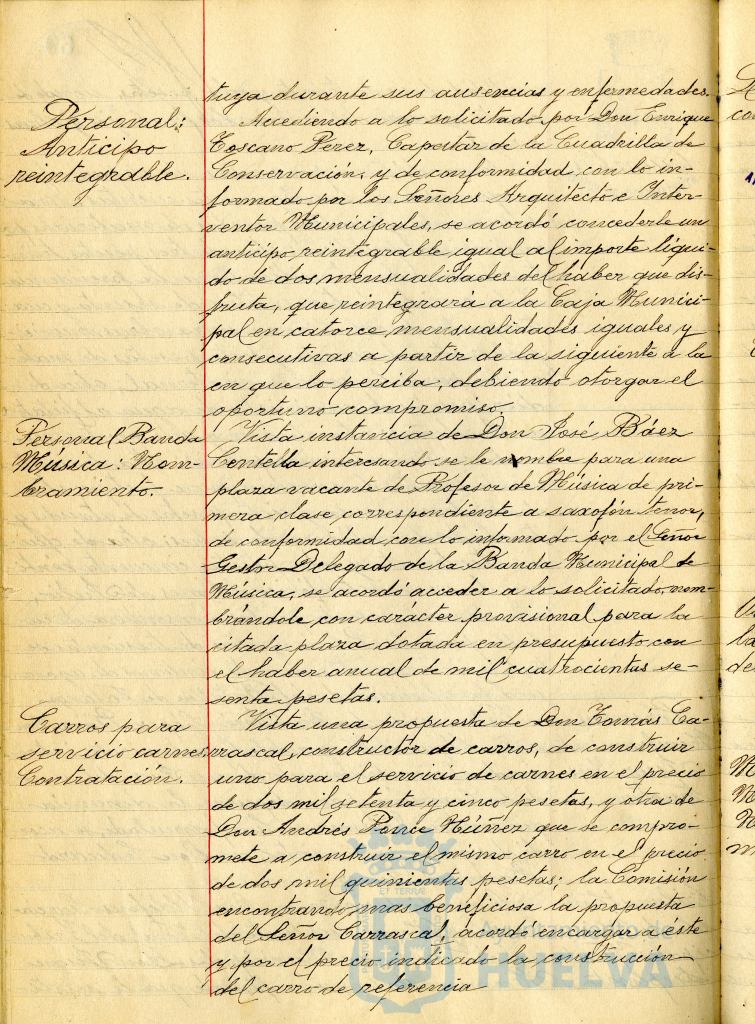 tuya durante sus ausencias y enfermedades.
Personal:
Anticipo
reintegrable.
Accediendo a lo solicitado por Don Enrique
Toscano Perez, Capataz de la Cuadrilla de
Conservación, y de conformidad con lo in-
formado por los Señores Arquitecto e Inter-
ventor Municipales, se acordó concederle un
anticipo reintegrable igual al importe líqui-
do de dos mensualidades del haber que dis-
fruta, que reintegrará a la Caja Munici-
pal en catorce mensualidades iguales y
consecutivas a partir de la siguiente a la
en que lo perciba, debiendo otorgar el
oportuno compromiso.
Personal Banda
Música: Nom-
bramiento.
Vista instancia de Don José Báez
Centella interesando se le nombre para una
plaza vacante de Profesor de Música de pri-
mera clase correspondiente a saxofón tenor,
de conformidad con lo informado por el Señor
Gestor Delegado de la Banda Municipal de
Música, se acordó acceder a lo solicitado, nom-
brándole con carácter provisional para la
citada plaza dotada en presupuesto con
el haber anual de mil cuatrocientas se-
senta pesetas.
Carros para
servicio carnes.
Contratación.
Vista una propuesta de Don Tomás Ca-
rrascal, constructor de carros, de construir
uno para el servicio de carnes en el precio
de dos mil setenta y cinco pesetas, y otra de
Don Andrés Ponce Núñez que se compro-
mete a construir el mismo carro en el precio
de dos mil quinientas pesetas; la Comisión
encontrando mas beneficiosa la propuesta
del Señor Carrascal, acordó encargar a éste
y por el precio indicado la construcción
del carro de referencia
HUELVA